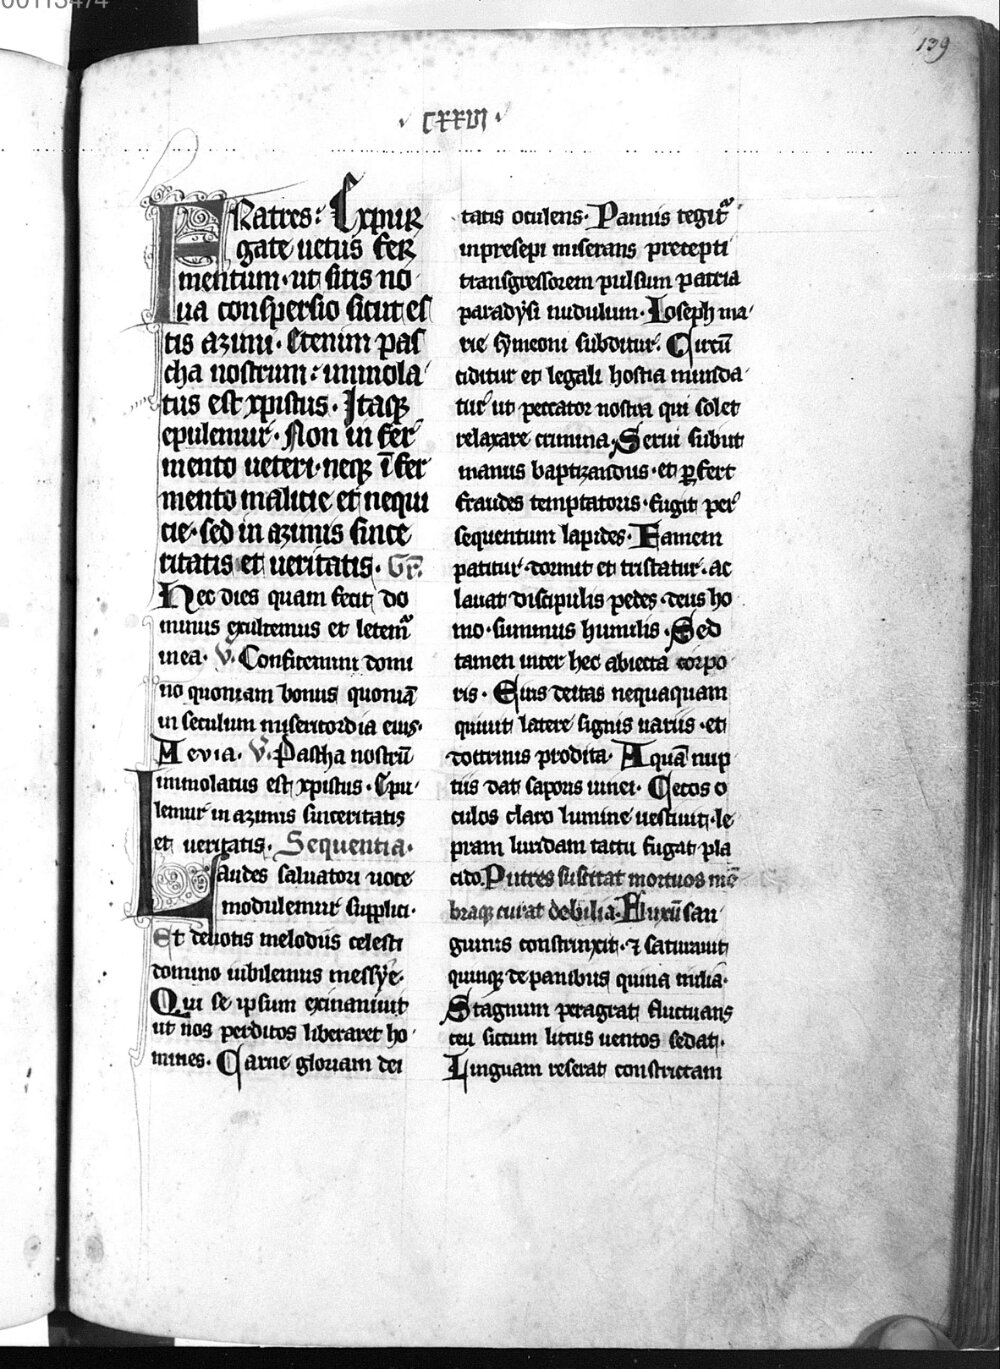 00113474
139
· CXXVI ·
FRatres: Expur
gate uetus fer
mentum · ut sitis no
ua conspersio sicut es
tis azimi · Etenim pas
cha nostrum: immola
tus est xpistus · Itaqꝫ
epulemur · Non in fer
mento ueteri · neqꝫ ī fer
mento malicie et nequi
cie · sed in azimis since
ritatis et ueritatis · Gr̄.
Hec dies quam fecit do
minus exultemus et letem̃
in ea · V. Confitemini domi
no quoniam bonus quoniā
in seculum misericordia eius ·
Aeuia · V. Pascha nostrū
immolatus est xpistus · Epu
lemur in azimis sinceritatis
et ueritatis. Sequentia ·
Laudes saluatori uoce
modulemur supplici ·
Et deuotis melodiis celesti
domino iubilemus messye ·
Qui se ipsum exinaniuit
ut nos perditos liberaret ho
mines · Carne gloriam dei
tatis oculens · Pannis tegit̃
in presepi miserans precepti
transgressorem pulsum patria
paradysi nudulum · Ioseph ma
rie symeoni subditur · Circū
ciditur et legali hostia munda
tur ut peccator nostra qui solet
relaxare crimina · Serui subiit
manus baptizandus · et ꝑfert
fraudes temptatoris · fugit per
sequentum lapides · Famem
patitur · dormit et tristatur · ac
lauat discipulis pedes · deus ho
mo · summus humilis · Sed
tamen inter hec abiecta corpo
ris · Eius deitas nequaquam
quiuit latere signis uariis · et
doctrinis prodita · Aquā nup
tiis dat saporis uinei · Cecos o
culos claro lumine uestiuit · le
pram luridam tactu fugat pla
cido. Putres suscitat mortuos mē
braqꝫ curat debilia · Fluxū san
guinis constrinxit · ⁊ saturauit
quinqꝫ de panibus quina milia ·
Stagnum peragrat fluctuans
ceu siccum litus uentos sedat ·
Linguam reserat constrictam